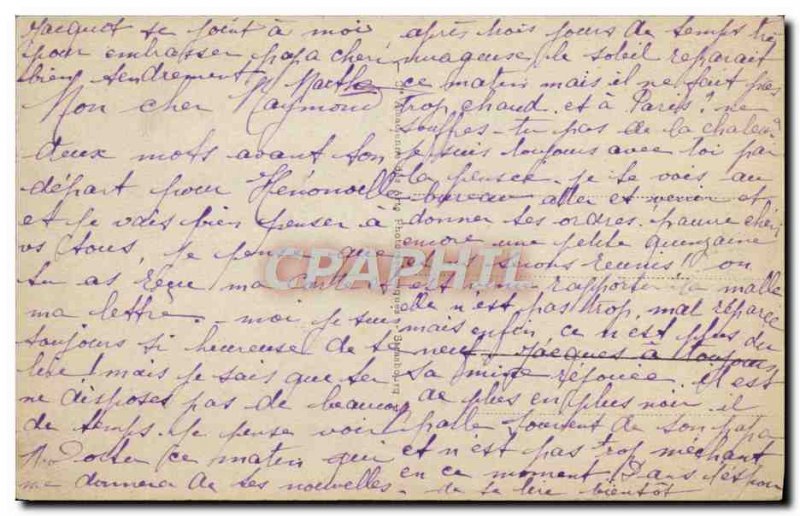 Jacquot se joint à moi
pour embrasser papa chéri
bien tendrement. Marthe
Mon cher Raymond
deux mots avant ton
départ pour
et je vais bien penser à
vs tous, je pense que
tu as reçu ma
ma lettre. moi je suis
toujours si heureuse de te
lire ! mais je sais que tu
ne disposes pas de beaucoup
de temps. je pense voir
ce matin qui
me donnera de tes nouvelles.
après trois jours de temps très
nuageux le soleil reparait
ce matin mais il ne fait pas
trop chaud. et à Paris ? ne
souffres-tu pas de la chaleur ?
je suis toujours avec toi par
la pensée. je te vois au
bureau aller et venir et
donner tes ordres. pauvre chéri
encore une petite quinzaine
et ns serons réunis ! on
est venu rapporter la malle
elle n'est pas trop mal réparée
mais enfin ce n'est plus du
neuf. Jacques a toujours
sa mine réjouie. il est
de plus en plus noir. il
parle souvent de son papa
et n'est pas trop méchant
en ce moment. Dans l'espoir
de te lire bientôt
CPAPHIL